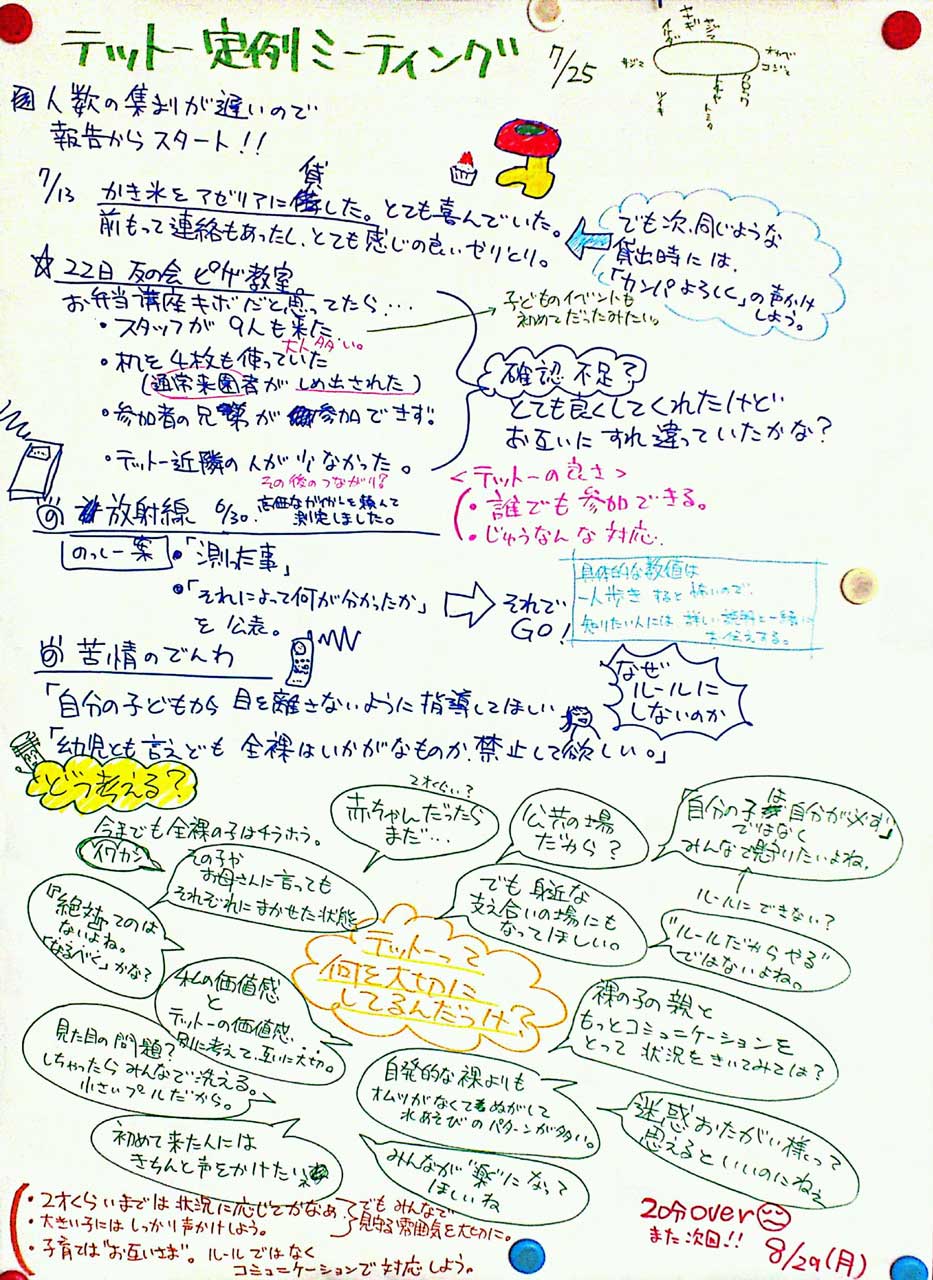 テットー定例ミーティング 7/25
人数の集まりが遅いので
報告からスタート!!
7/13 かき氷をアゼリアに貸した。とても喜んでいた。
前もって連絡もあったし、とても感じの良いやりとり。
でも次、同じような
貸出時には、
「カンパよろしく」の声かけ
しよう。
☆22日 友の会 ピザ教室。
お弁当講座キボだと思ってたら…
・スタッフが9人も来た
大人多い。
子どものイベントも
初めてだったみたい。
・机を4枚も使っていた
(通常来園者がしめ出された)
・参加者の兄弟が参加できず。
・テットー近隣の人が少なかった。
その後のつながり?
確認不足?
とても良くしてくれたけど
お互いにすれ違っていたかな?
<テットーの良さ>
・誰でも参加できる。
・じゅうなんな対応。
放射線 6/30.
測定しました。
のっしー案
・「測った事」
・「それによって何が分かったか」
を公表。
それで
GO!
具体的な数値は
一人歩きすると怖いので、
知りたい人には、詳しい説明と一緒に
お伝えする。
苦情のでんわ
「自分の子どもから目を離さないように指導してほしい
「幼児とも言えども全裸はいかがなものか、禁止して欲しい。」
なぜ
ルールに
しないのか
どう考える?
今までも全裸の子はチラホラ。
イワカン
その子か
お母さんに言っても
それぞれにまかせた状態
2才ぐらい?
赤ちゃんだったら
まだ…
公共の場
だから?
「自分の子は自分が必ず」
ではなく
みんなで見守りたいよね。
ルールにできない?
"ルールだからやる"
ではないよね。
でも身近な
支え合いの場にも
なってほしい。
『絶対』てのは
ないよね。
「なるべく」かな?
テットーって
何を大切に
してるんだっけ?
私の価値感
と
テットーの価値感、
別に考えて、互いに大切。
裸の子の親と
もっとコミュニケーションを
とって状況をきいてみては?
見た目の問題?
しちゃったらみんなで洗える。
小さいプールだから。
自発的な裸よりも
オムツがなくてぬがして
水あそびのパターンが多い。
迷惑おたがい様って
思えるといいのにねぇ
初めて来た人には
きちんと声をかけたい
みんなが"楽"になって
ほしいね
・2才くらいまでは状況に応じてかなぁ
・大きい子にはしっかり声かけしよう。
でもみんなで
見守る雰囲気を大切に。
・子育ては"お互いさま"。ルールではなく
コミュニケーションで対応しよう。
20分over
また次回!!
8/29(月)